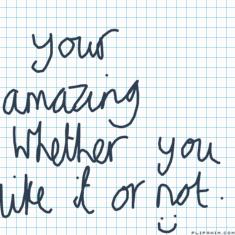 your
amazing
Whether you
like it or not.
FLIPANIM.COM